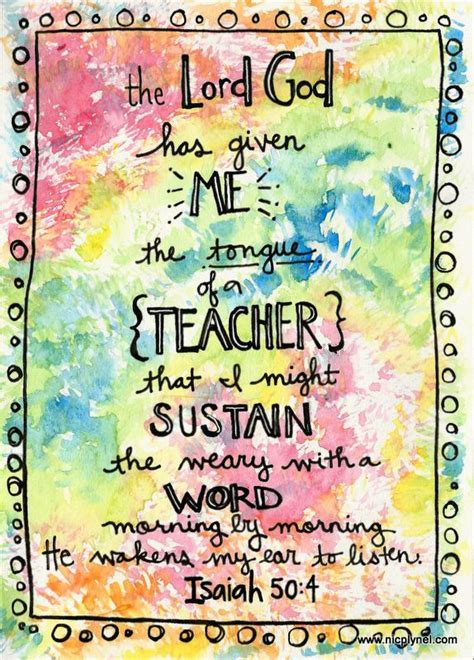 the Lord God
has given
ME
the tongue
of a
{TEACHER}
that I might
SUSTAIN
the weary with a
WORD
morning by morning
He wakens my ear to listen.
Isaiah 50:4
www.nicplynel.com